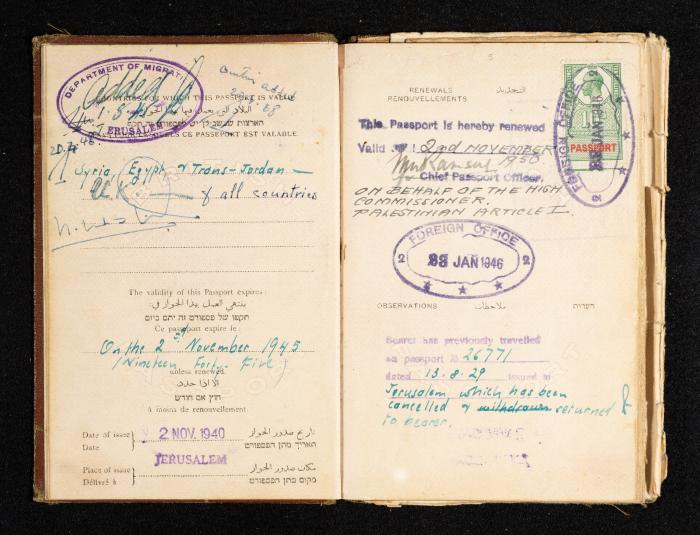 DEPARTMENT OF MIGRATI
JERUSALEM
COUNTRIES FOR WHICH THIS PASSPORT IS VALID
CE PASSEPORT EST VALABLE
Syria, Egypt, & Trans-Jordan —
U.K. & all countries
The validity of this Passport expires:
ينتهي العمل بهذا الجواز في:
תקפו של פספורט זה יתם ביום
Ce passeport expire le:
On the 2nd November 1945
(Nineteen Forty-Five)
unless renewed.
الا اذا جدد
חוץ אם חודש
à moins de renouvellement.
Date of issue
تاريخ صدور الجواز
2 NOV. 1940
Date
תאריך מתן הפספורט
JERUSALEM
Place of issue
مكان صدور الجواز
Délivré à
מקום מתן הפספורט
5
RENEWALS
التجديد
RENOUVELLEMENTS
PASSPORT
FOREIGN OFFICE
JAN 1946
2
This Passport is hereby renewed
Valid 2nd NOVEMBER
1950
Chief Passport Officer,
ON BEHALF OF THE HIGH
COMMISSIONER.
PALESTINIAN ARTICLE I.
FOREIGN OFFICE
2 JAN 1946 2
OBSERVATIONS
ملاحظات
הערות
Bearer has previously travelled
on passport 26771
dated 13.8.29 issued in
Jerusalem, which has been
cancelled & withdrawn returned
to bearer.